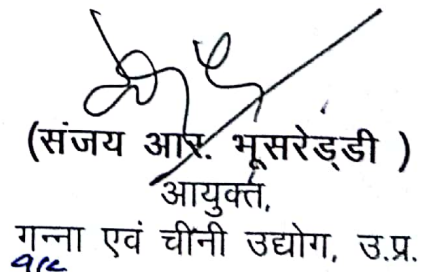 (संजय आर. भूसरेड्डी )
आयुक्त,
गन्ना एवं चीनी उद्योग, उ.प्र.